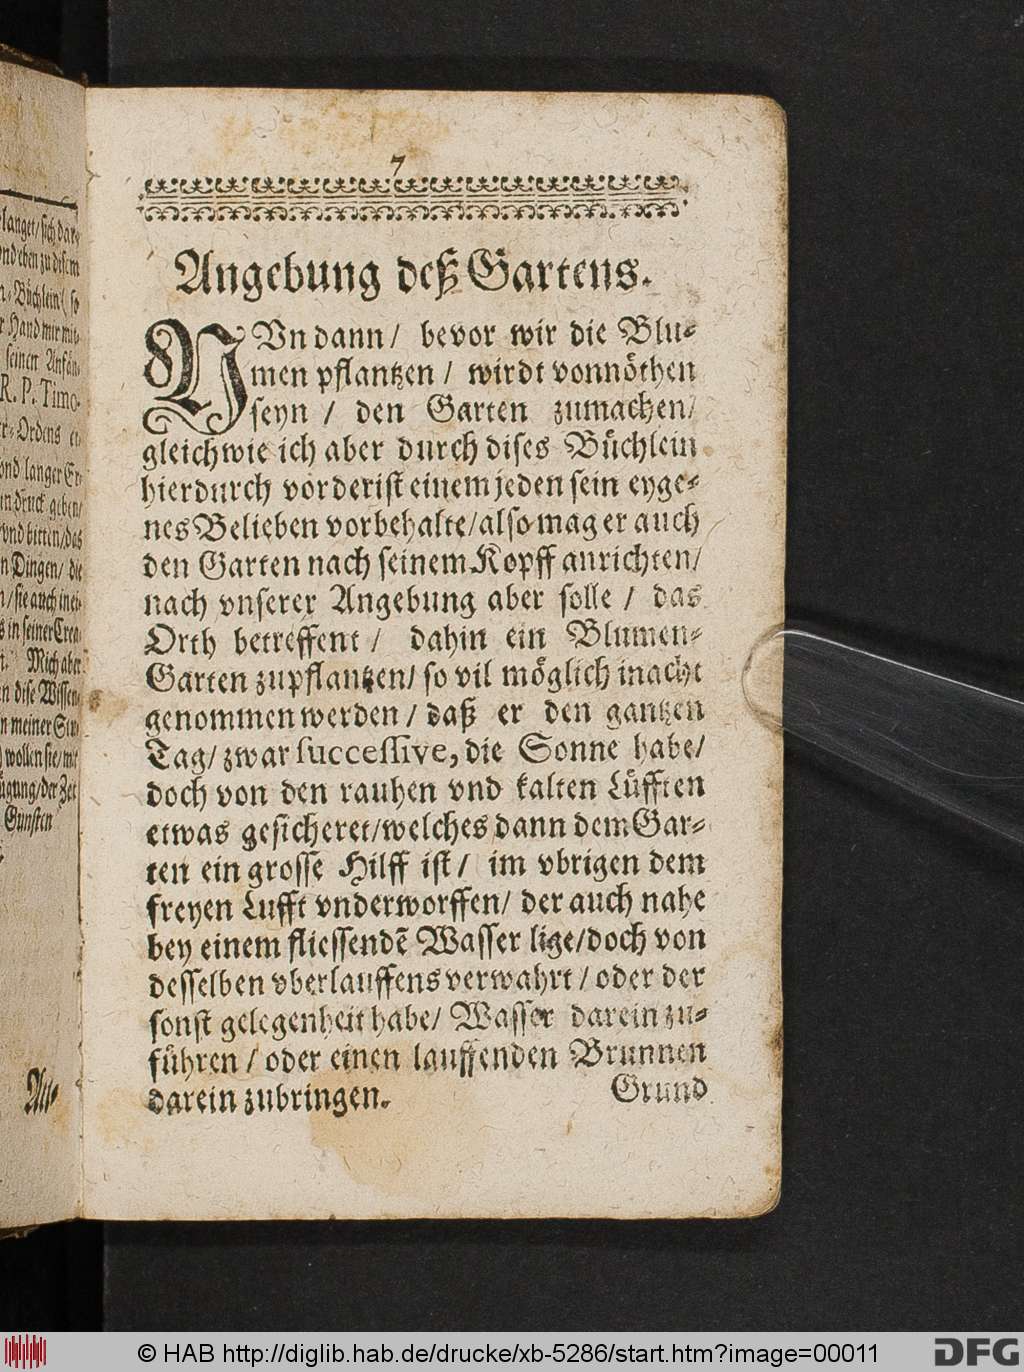 langet/ sich dar-
vnd eben zu disem
n-Büchlein ( so
r Hand mir mit-
seinen Anfän-
R. P. Timo-
r-Ordens
vnd langer Er-
in druck geben/
vnd bitten/ das
n Dingen/ die
n/ sie auch
s in seiner Crea-
t. Mich aber
n dise Wissen-
n meiner
wollen sie/ mit
ügung/ der Zeit
Gunsten
An-
7
Angebung deß Gartens.
NVn dann/ bevor wir die Blu-
men pflantzen / wirdt vonnöthen
seyn / den Garten zumachen/
gleich wie ich aber durch dises Büchlein
hierdurch vorderist einem jeden sein eyge-
nes Belieben vorbehalte/ also mag er auch
den Garten nach seinem Kopff anrichten/
nach vnserer Angebung aber solle / das
Orth betreffent / dahin ein Blumen-
Garten zupflantzen/ so vil möglich in acht
genommen werden / daß er den gantzen
Tag/ zwar successive, die Sonne habe/
doch von den rauhen vnd kalten Lüfften
etwas gesicheret/ welches dann dem Gar-
ten ein grosse Hilff ist / im vbrigen dem
freyen Lufft vnderworffen/ der auch nahe
bey einem fliessendẽ Wasser lige/ doch von
desselben vberlauffens verwahrt / oder der
sonst gelegenheit habe/ Wasser darein zu-
führen / oder einen lauffenden Brunnen
darein zubringen. Grund
© HAB http://diglib.hab.de/drucke/xb-5286/start.htm?image=00011
DFG